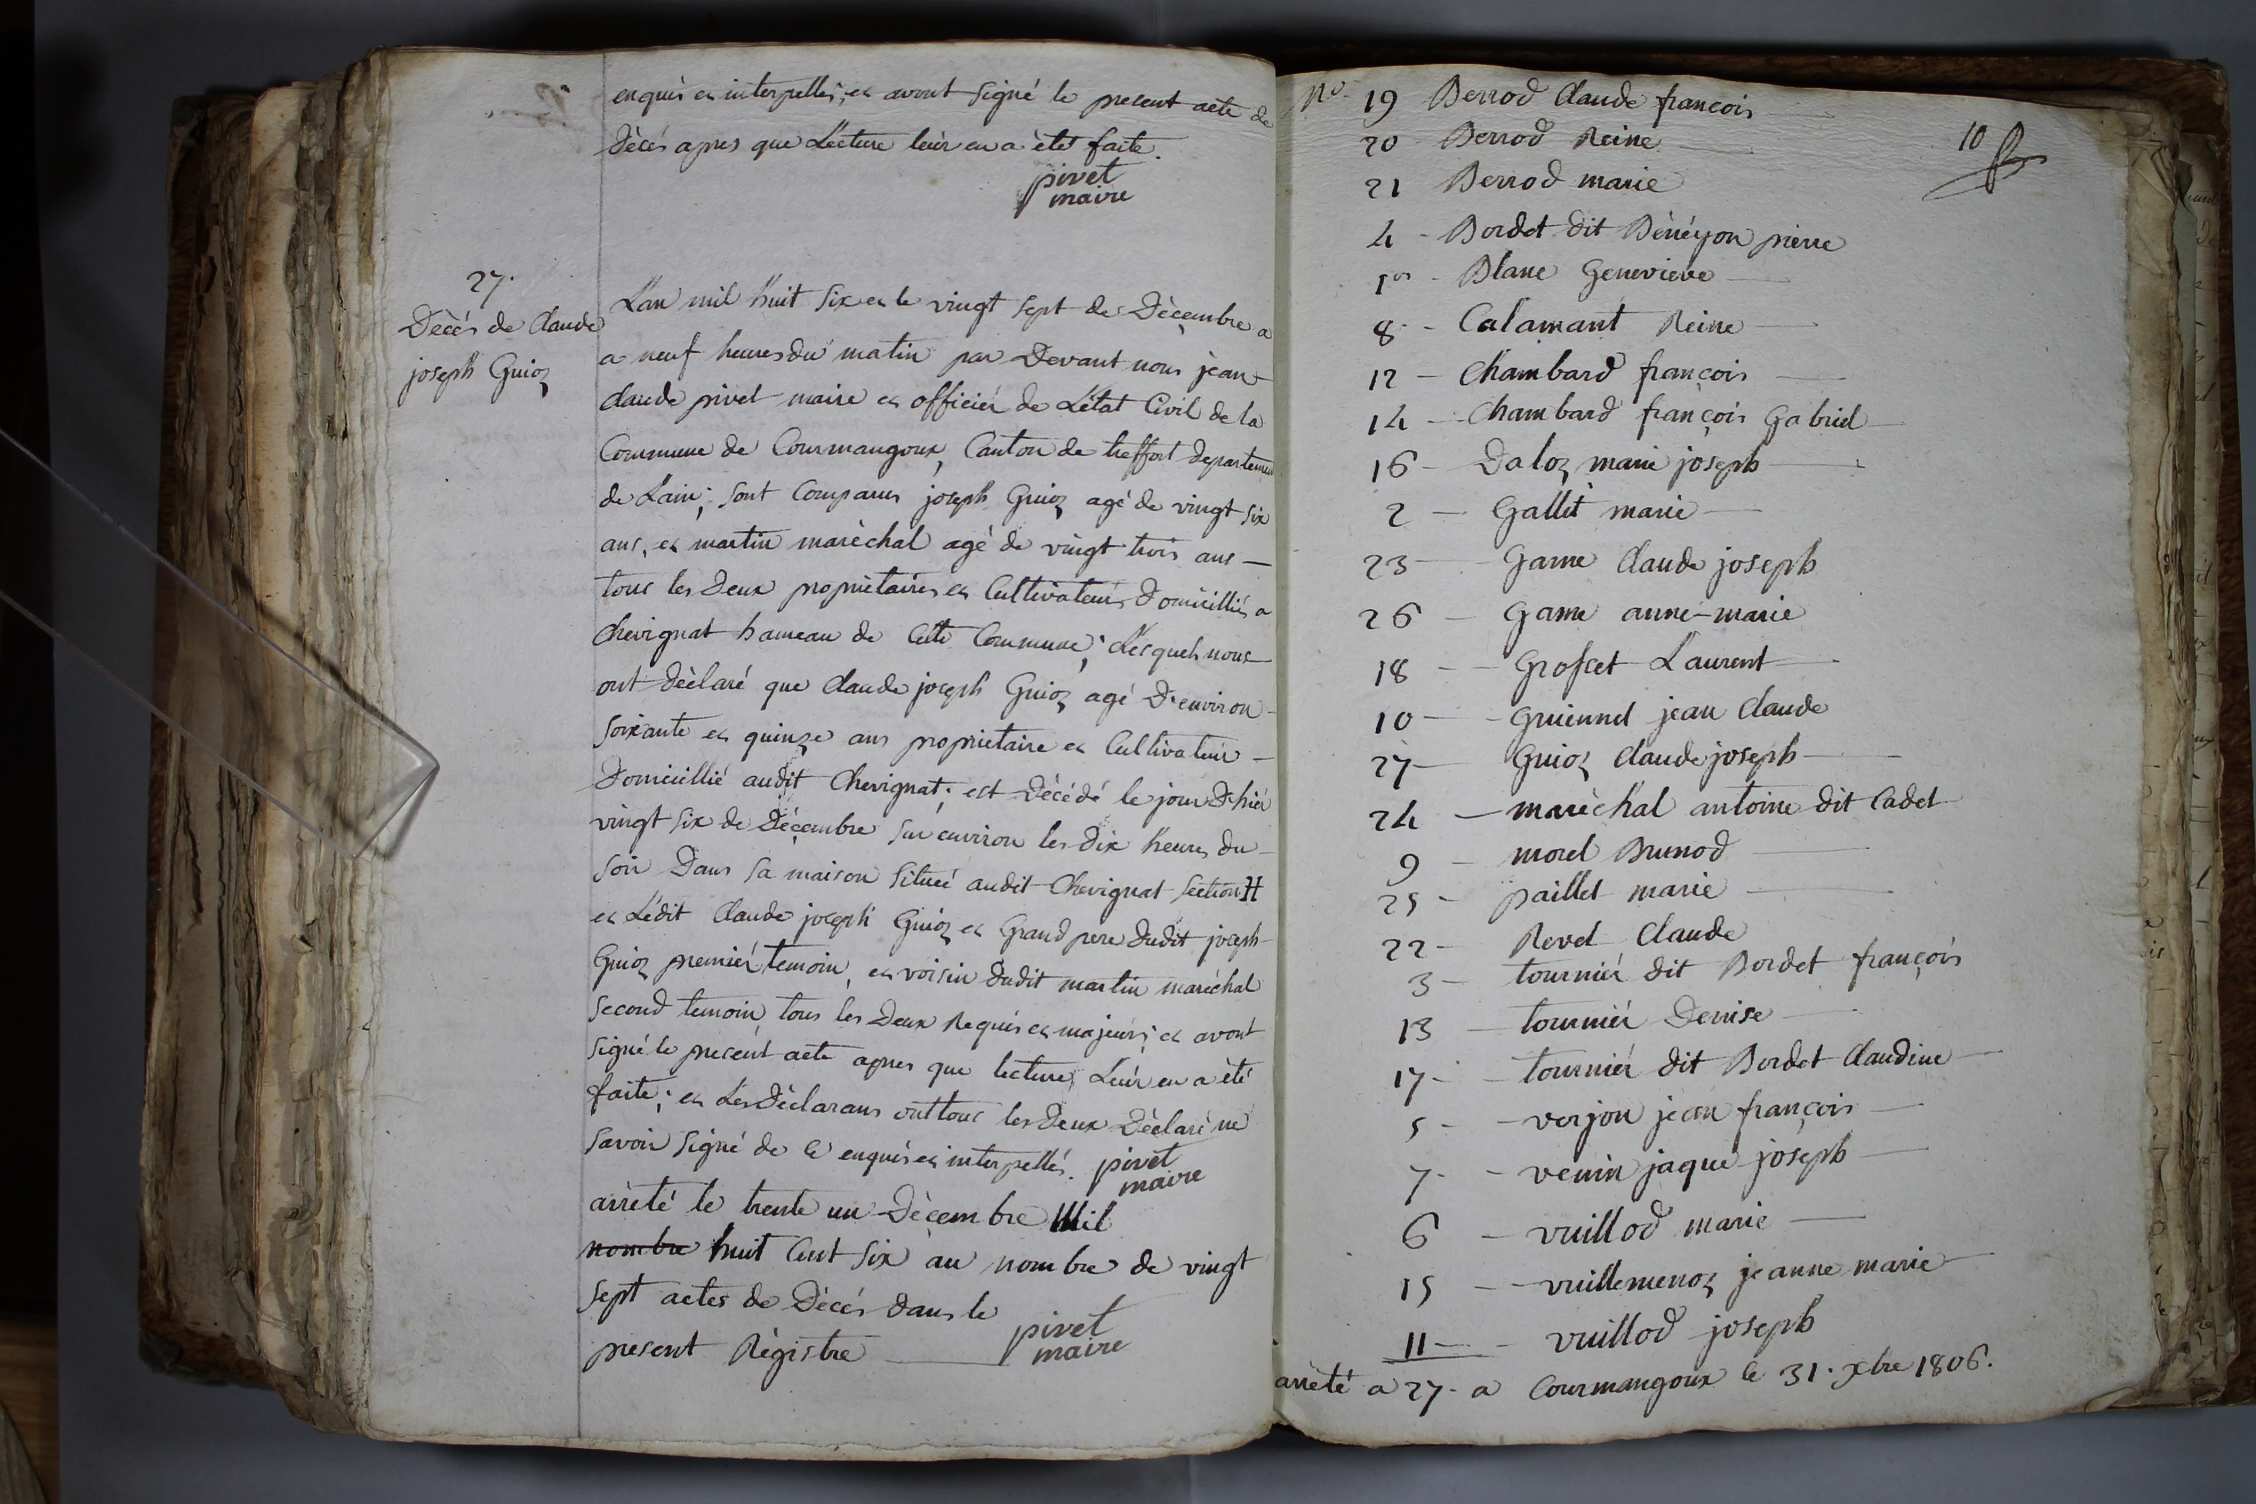 enquis et interpellés, et avont signé le present acte de
Décés apres que Lecture leur en a étés faite.
pivet
maire
27.
Décés de Claude
joseph Guioz
L'an mil huit six et le vingt sept de Décembre a
a neuf heures du matin par Devant nous jean
claude pivet maire et officier de L'état Civil de la
Commune de Courmangoux, Canton de treffort departemen
de L'ain; sont Comparus joseph Guioz agé de vingt six
ans, et martin maréchal agé de vingt trois ans —
tous les Deux propriètaires et Cultivateurs Domicilliés a
Chevignat hameau de Cette Commune; Lesquels nous
ont dèclaré que Claude joseph Guioz agé D'environ
Soixante et quinze ans proprietaire et Cultivateur —
Domicillié audit Chevignat; est Dècédé le jour D'hiér
vingt six de Décembre sur environ les Dix heures du
soir Dans sa maison situeé audit Chevignat Section H
et Lédit Claude joseph Guioz et Grand pere dudit joseph
Guioz premiér temoin, et voisin dudit martin maréchal
second temoin, tous les Deux Requis et majeurs; et avont
signé le present acte apres que lecture Leur en a été
faite; et Les Dèclarans ont tous les Deux Dèclaré ne
savoir signé de ce enquis et interpellés. pivet
maire
arrèté le trente un Dècembre Mil
nombre huit Cent six au nombre de vingt
sept actes de Dècés dans le
present Régistre — pivet
maire
No. 19 Berrod Claude francois
10
20 Berrod Reine
21 Berrod marie
4 - Bordet dit Bénéyon pierre
1er - Blanc Genevieve
8 - Calamant Reine
12 - Chambard françois
14 - Chambard françois Gabriel
16 - Daloz marie joseph
2 - Gallet marie
23 - Game Claude joseph
26 - Game anne-marie
18 - Grosset Laurent
10 - Guiennet jean Claude
27 - Guioz Claude joseph
24 - maréchal antoine dit Cadet
9 - morel Brunod
25 - paillet marie
22 - Revel Claude
3 - tourniér dit Bordet françois
13 - tourniér Denise
17 - tourniér dit Bordet Claudine
5 - verjon jean françois
7 - venin jaque joseph
6 - vuillod marie
15 - vuillemenoz jeanne marie
11 - vuillod joseph
arreté a 27 - a Courmangoux le 31. xbre 1806.